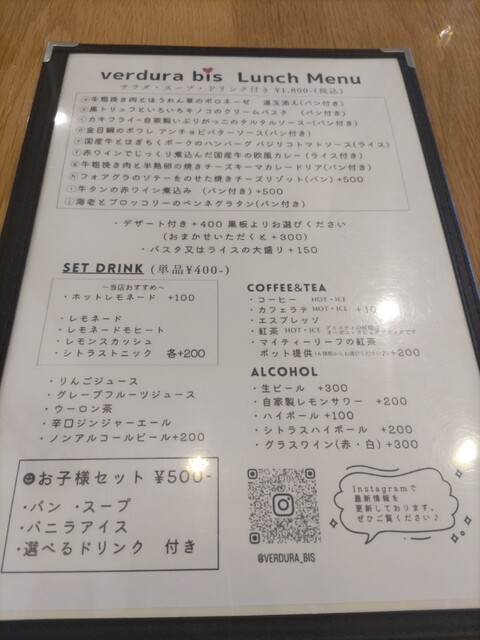 verdura bis Lunch Menu
サラダ・スープ・ドリンク付き ¥1,800-(税込)
ⓐ牛粗挽き肉とほうれん草のボロネーゼ 温玉添え(パン付き)
ⓑ黒トリュフといろいろキノコのクリームパスタ (パン付き)
ⓒカキフライ~自家製いぶりがっこのタルタルソース~(パン付き)
ⓓ金目鯛のポワレ アンチョビバターソース(パン付き)
ⓔ国産牛とはぎちくポークのハンバーグ バジリコトマトソース(ライス)
ⓕ赤ワインでじっくり煮込んだ国産牛の欧風カレー(ライス付き)
ⓖ牛粗挽き肉と半熟卵の焼きチーズキーマカレードリア(パン付き)
ⓗフォアグラのソテーをのせた焼きチーズリゾット(パン)+500
ⓘ牛タンの赤ワイン煮込み (パン付き)+500
ⓙ海老とブロッコリーのペンネグラタン(パン付き)
・デザート付き+400 黒板よりお選びください
(おまかせいただくと+300)
・パスタ又はライスの大盛り+150
SET DRINK (単品¥400-)
~当店おすすめ~
・ホットレモネード +100
・レモネード
・レモネードモヒート
・レモンスカッシュ
・シトラストニック 各+200
・りんごジュース
・グレープフルーツジュース
・ウーロン茶
・辛口ジンジャーエール
・ノンアルコールビール+200
COFFEE&TEA
・コーヒー HOT・ICE
・カフェラテ HOT・ICE
・エスプレッソ
・紅茶 HOT・ICE
・マイティーリーフの紅茶
ポット提供 +200
ALCOHOL
・生ビール +300
・自家製レモンサワー +200
・ハイボール +100
・シトラスハイボール +200
・グラスワイン(赤・白) +300
お子様セット ¥500-
・パン ・スープ
・バニラアイス
・選べるドリンク 付き
@VERDURA_BIS
Instagramで
最新情報を
更新しております。
ぜひご覧ください♪